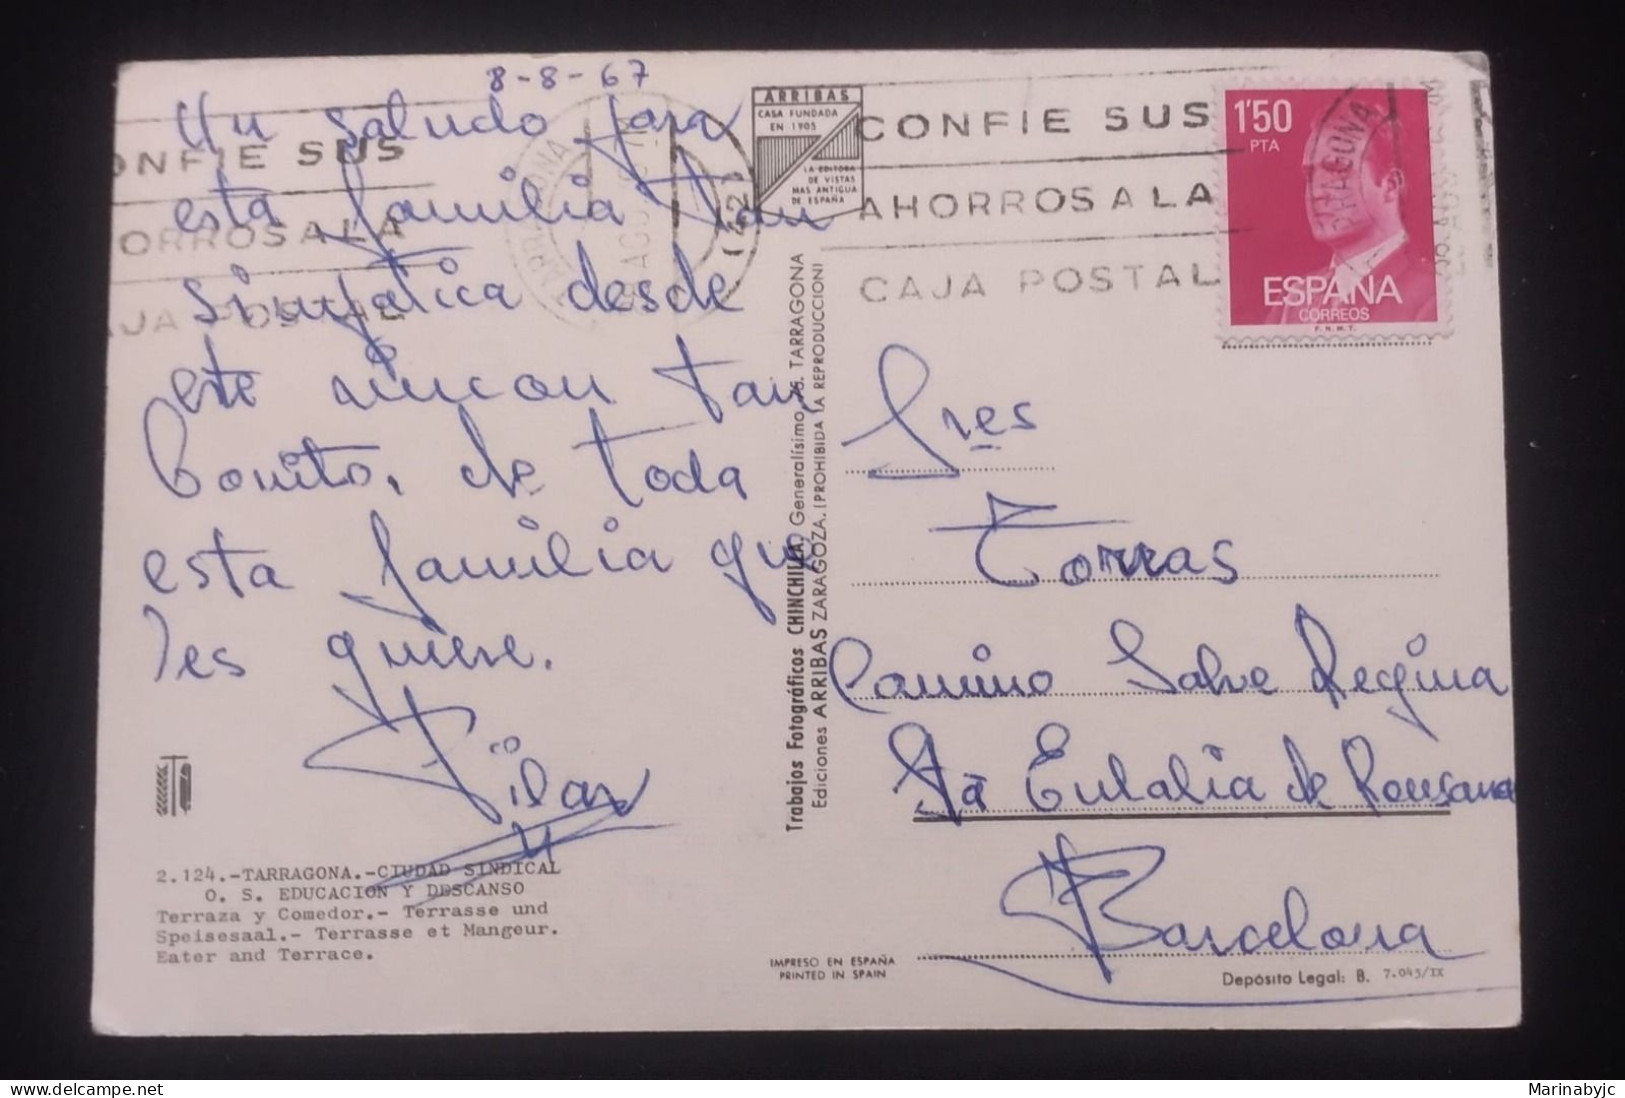 8-8-67
Un saludo para
esta familia tan
simpatica desde
este rincon tan
bonito, de toda
esta familia que
les quiere.
Pilar
2.124.-TARRAGONA.-CIUDAD SINDICAL
O. S. EDUCACION Y DESCANSO
Terraza y Comedor.- Terrasse und
Speisesaal.- Terrasse et Mangeur.
Eater and Terrace.
ONFIE SUS
ORROS A LA
AJA POSTAL
TARRAGONA
AGO
(42)
ARRIBAS
CASA FUNDADA
EN 1905
LA EDITORA
DE VISTAS
MAS ANTIGUA
DE ESPAÑA
CONFIE SUS
AHORROS A LA
CAJA POSTAL
1'50
PTA
ESPAÑA
CORREOS
F.N.M.T.
Trabajos Fotográficos CHINCHILLA. Generalísimo, TARRAGONA
Ediciones ARRIBAS ZARAGOZA. (PROHIBIDA LA REPRODUCCION)
Sres
Torras
Camino Salve Regina
Sta Eulalia de Ronsana
Barcelona
IMPRESO EN ESPAÑA
PRINTED IN SPAIN
Depósito Legal: B. 7.045/IX
Marinabyjc